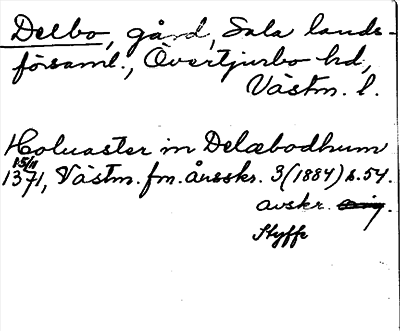 Delbo, gård, Sala lands-
församl., Övertjurbo hd,
Västm. l.
Holuaster in Delæbodhum
15/11
1371, Västm. fm. årsskr. 3 (1884) s. 54.
avskr.
Styffe